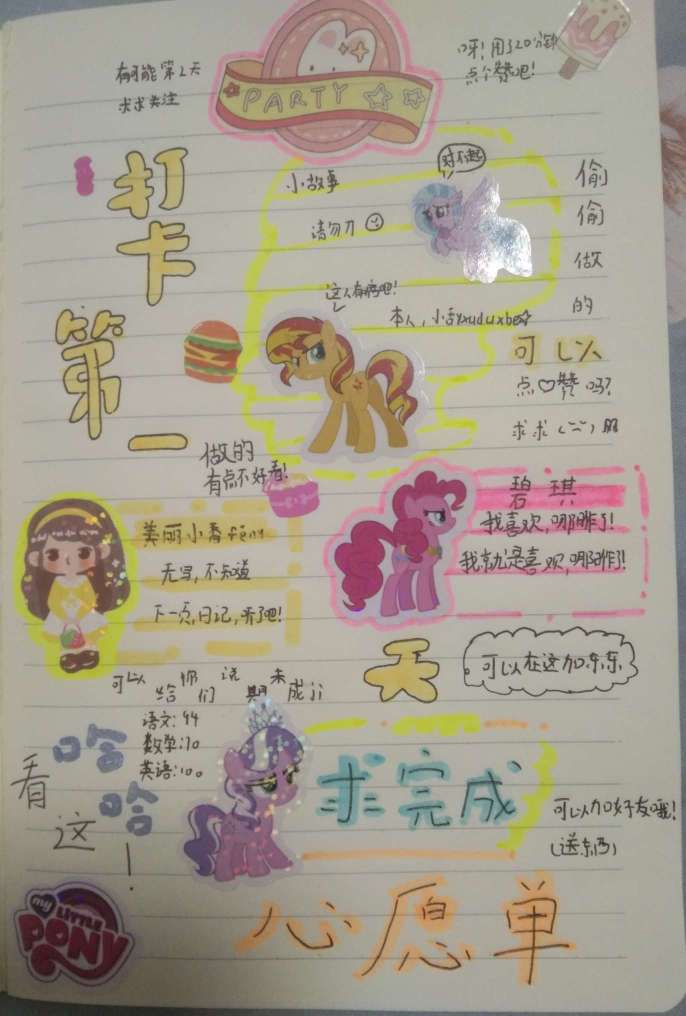 有可能第2天
求求关注
PARTY
呀！用了20分钟
点个赞吧！
打卡第一
小故事
对不起
请勿刀
偷偷做的
这人有病吧！
本人，小
可以
点♡赞吗？
求求
做的
有点不好看！
碧琪
我喜欢，哪咋了！
我就是喜欢，哪咋了！
美丽小香
无写，不知道
下一页，日记，开了吧！
天
可以在这加东东
可以给你们说期末成ji
语文：44
数学：70
英语：100
看这
哈哈！
求完成
可以加好友哦！
（送东西）
my LITTLE PONY
心愿单